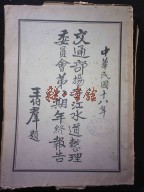 中華民國十八年
交通部揚子江水道整理
委員會第八期年終報告
王伯群題